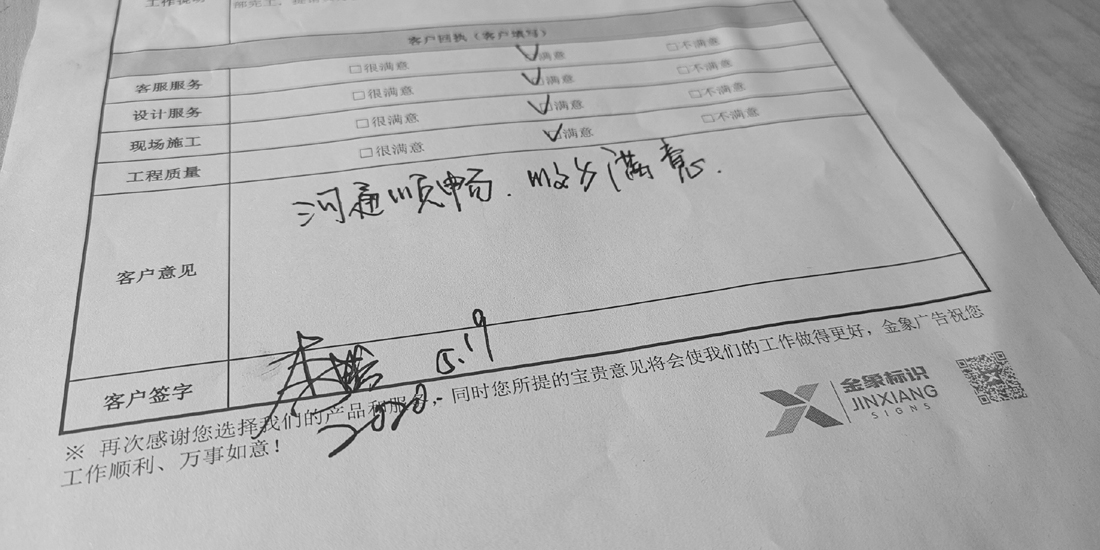 工作说明
客户回执（客户填写）
客服服务 □很满意 ☑满意 □不满意
设计服务 □很满意 ☑满意 □不满意
现场施工 □很满意 ☑满意 □不满意
工程质量 □很满意 ☑满意 □不满意
客户意见
沟通顺畅.
满意.
客户签字
5.19
2020.
※ 再次感谢您选择我们的产品和服务，同时您所提的宝贵意见将会使我们的工作做得更好，金象广告祝您
工作顺利、万事如意！
金象标识
JINXIANG
SIGNS